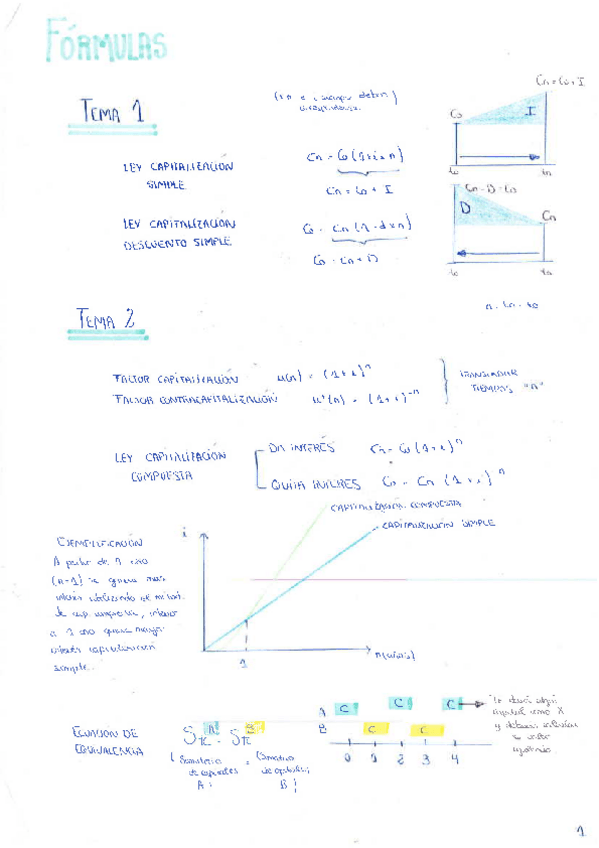 FÓRMULAS
TEMA 1
(i n e i siempre deben)
Cn = Co + I
Co
I
LEY CAPITALIZACIÓN
SIMPLE
Cn = Co (1+i×n)
Cn = Co + I
to
tn
LEY CAPITALIZACIÓN
DESCUENTO SIMPLE
Co = Cn (1-d×n)
Co = Cn - D
Cn - D = Co
D
Cn
to
tn
n = tn - to
TEMA 2
FACTOR CAPITALIZACIÓN u(n) = (1+i)^n
FACTOR CONTRACAPITALIZACIÓN u'(n) = (1+i)^-n
TRANSLADAR
TIEMPOS "n"
LEY CAPITALIZACIÓN
COMPUESTA
DA INTERÉS Cn = Co (1+i)^n
QUITA INTERES Co = Cn (1+i)^n
CAPITALIZACIÓN COMPUESTA
CAPITALIZACIÓN SIMPLE
EJEMPLIFICACIÓN
A partir de 1 año
(n=1) se genera más
interés utilizando el método
de cap. compuesta, inferior
a 1 año genera mayor
interés capitalización
simple.
i
1
n(años)
ECUACIÓN DE
EQUIVALENCIA
A
B
Sumatorio
de capitales
A
=
Sumatorio
de capitales
B
A C C C
B C C
0 1 2 3 4
como X